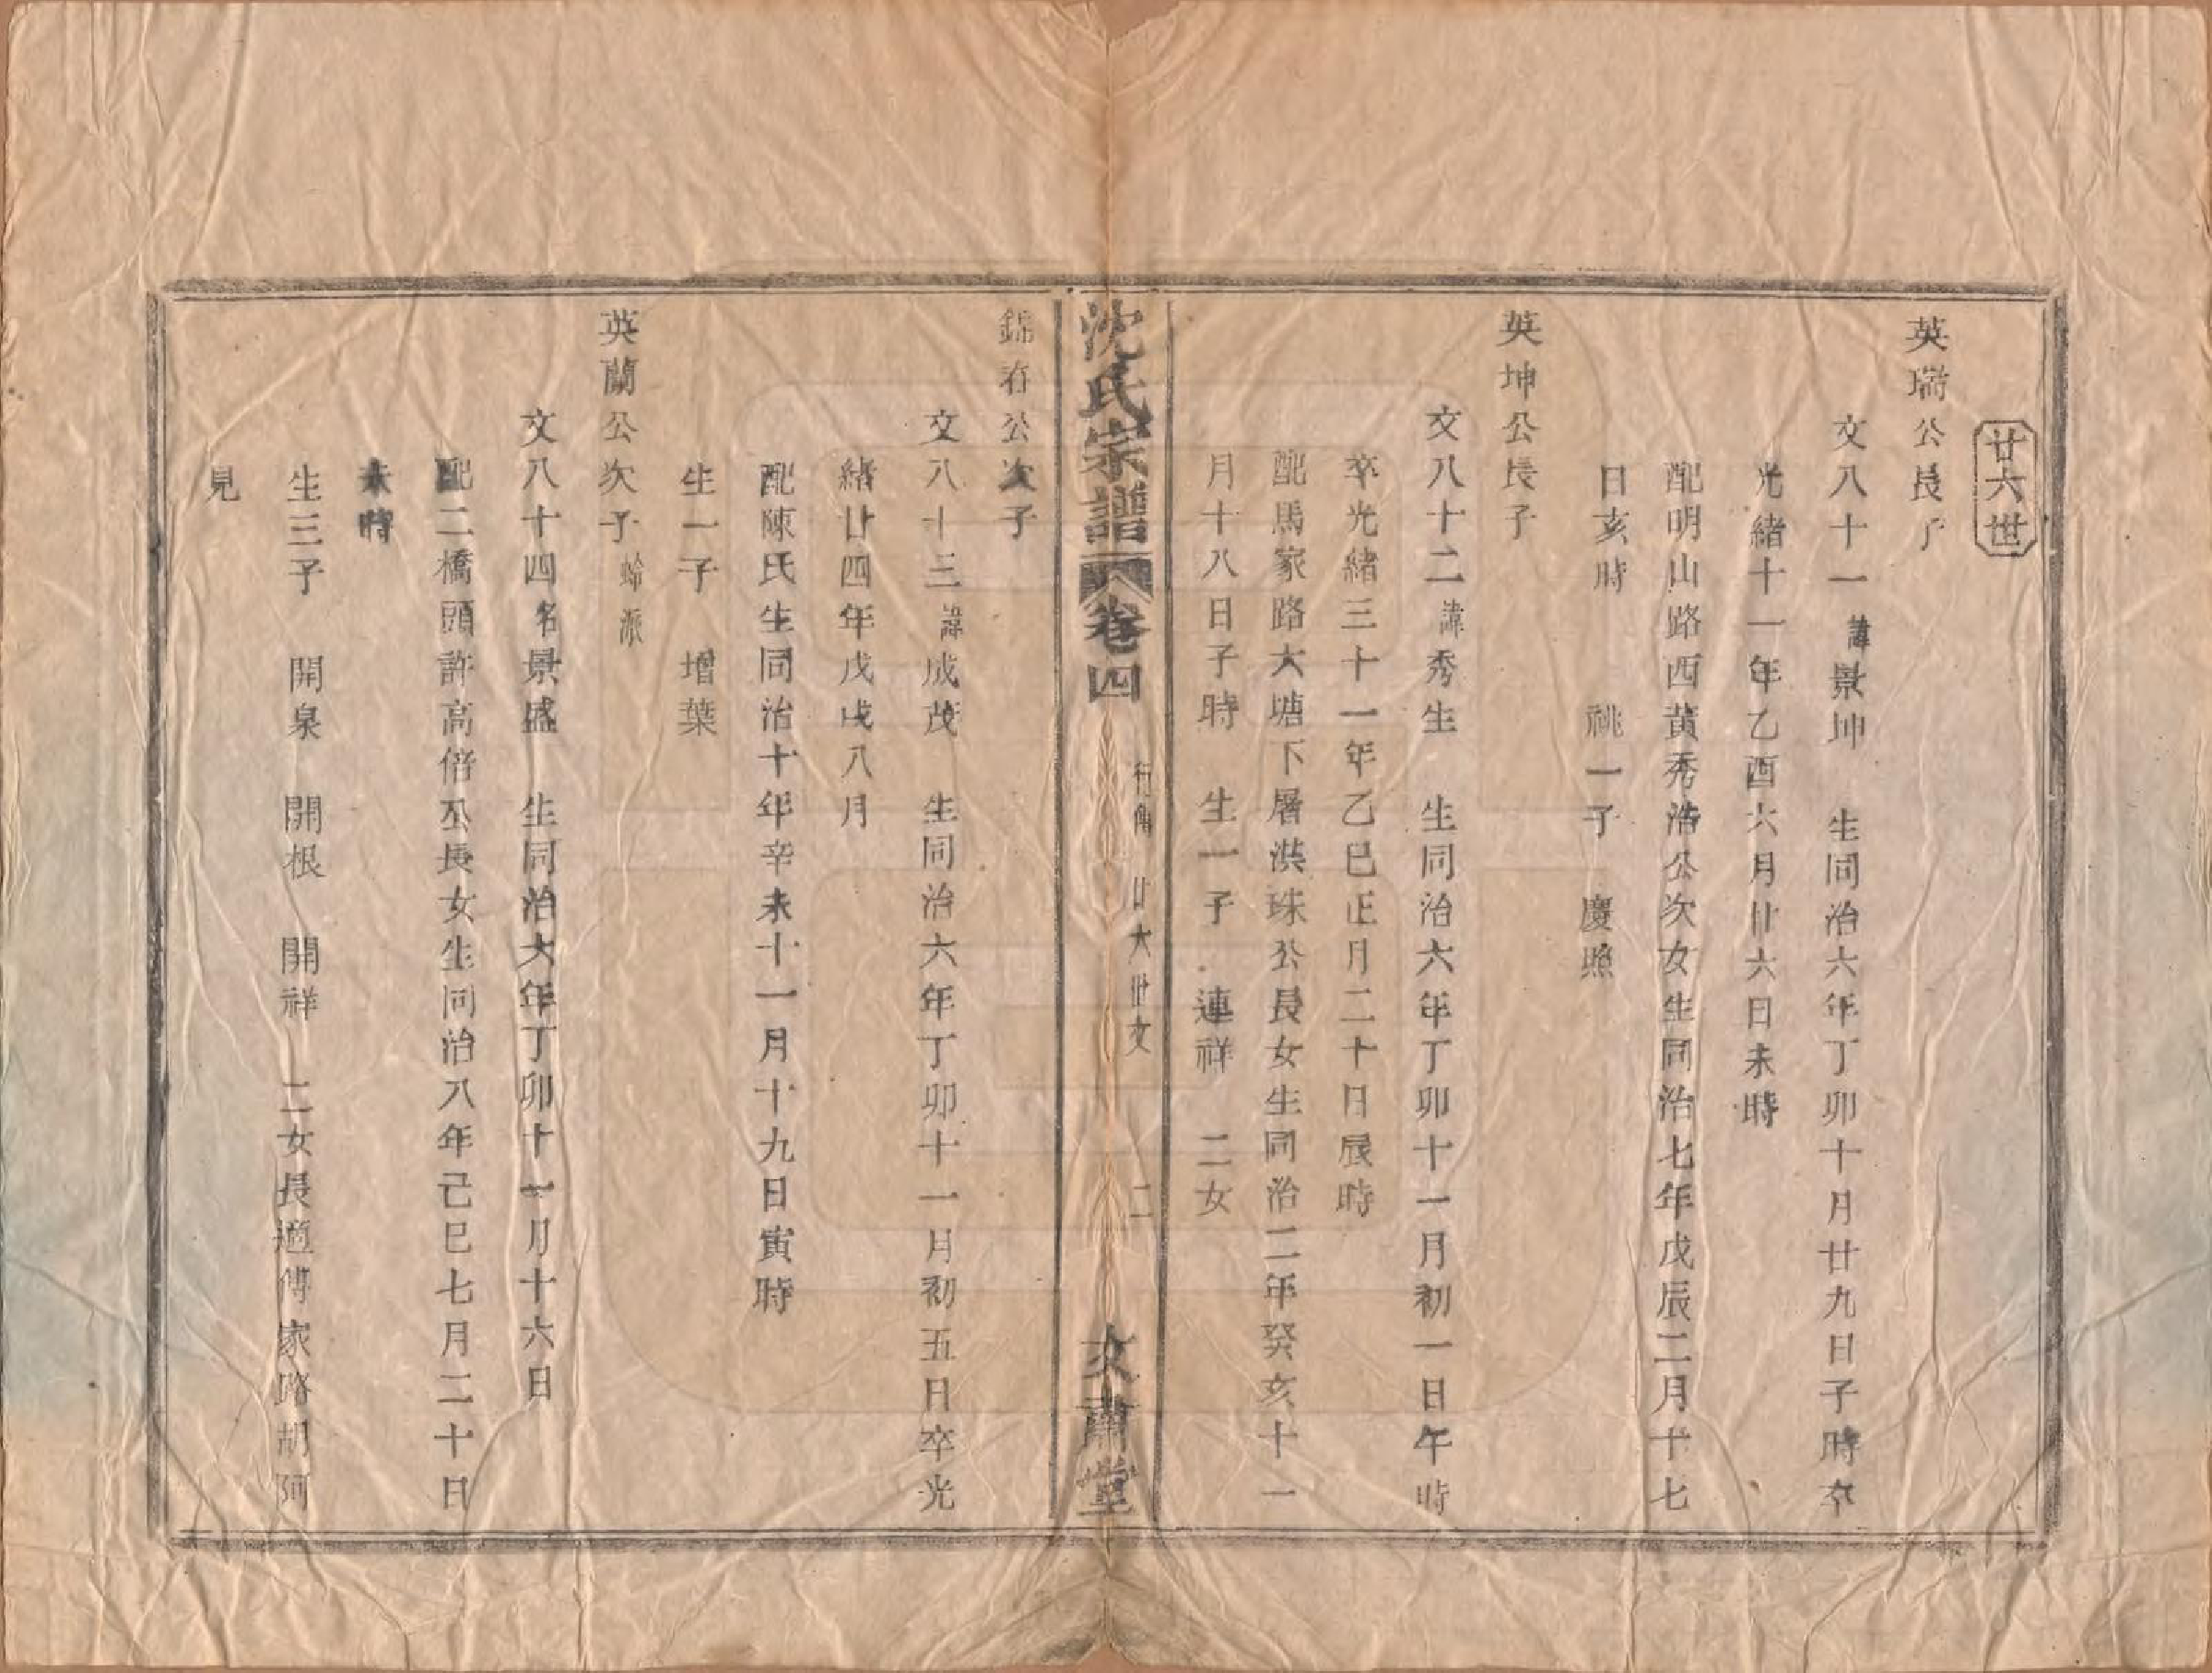 廿六世
英瑞公長子
文八十一諱景坤　生同治六年丁卯十月廿九日子時卒
光緒十一年乙酉六月廿六日未時
配明山路西黄秀浩公次女生同治七年戊辰二月十七
日亥時　　祧一子　慶照
英坤公長子
文八十二諱秀生　生同治六年丁卯十一月初一日午時
卒光緒三十一年乙巳正月二十日辰時
配馬家路大塘下層洪珠公長女生同治二年癸亥十一
月十八日子時　生一子　連祥　二女
沈氏宗譜　卷四　行傳　廿六世文　二　文肅堂
錦存公次子
文八十三諱成茂　生同治六年丁卯十一月初五日卒光
緒廿四年戊戌八月
配陳氏生同治十年辛未十一月十九日寅時
生一子　增葉
英蘭公次子
文八十四名景盛　生同治六年丁卯十一月十六日
配二橋頭許高倍公長女生同治八年己巳七月二十日
未時
生三子　開泉　開根　開祥　二女長適傅家路胡阿
見